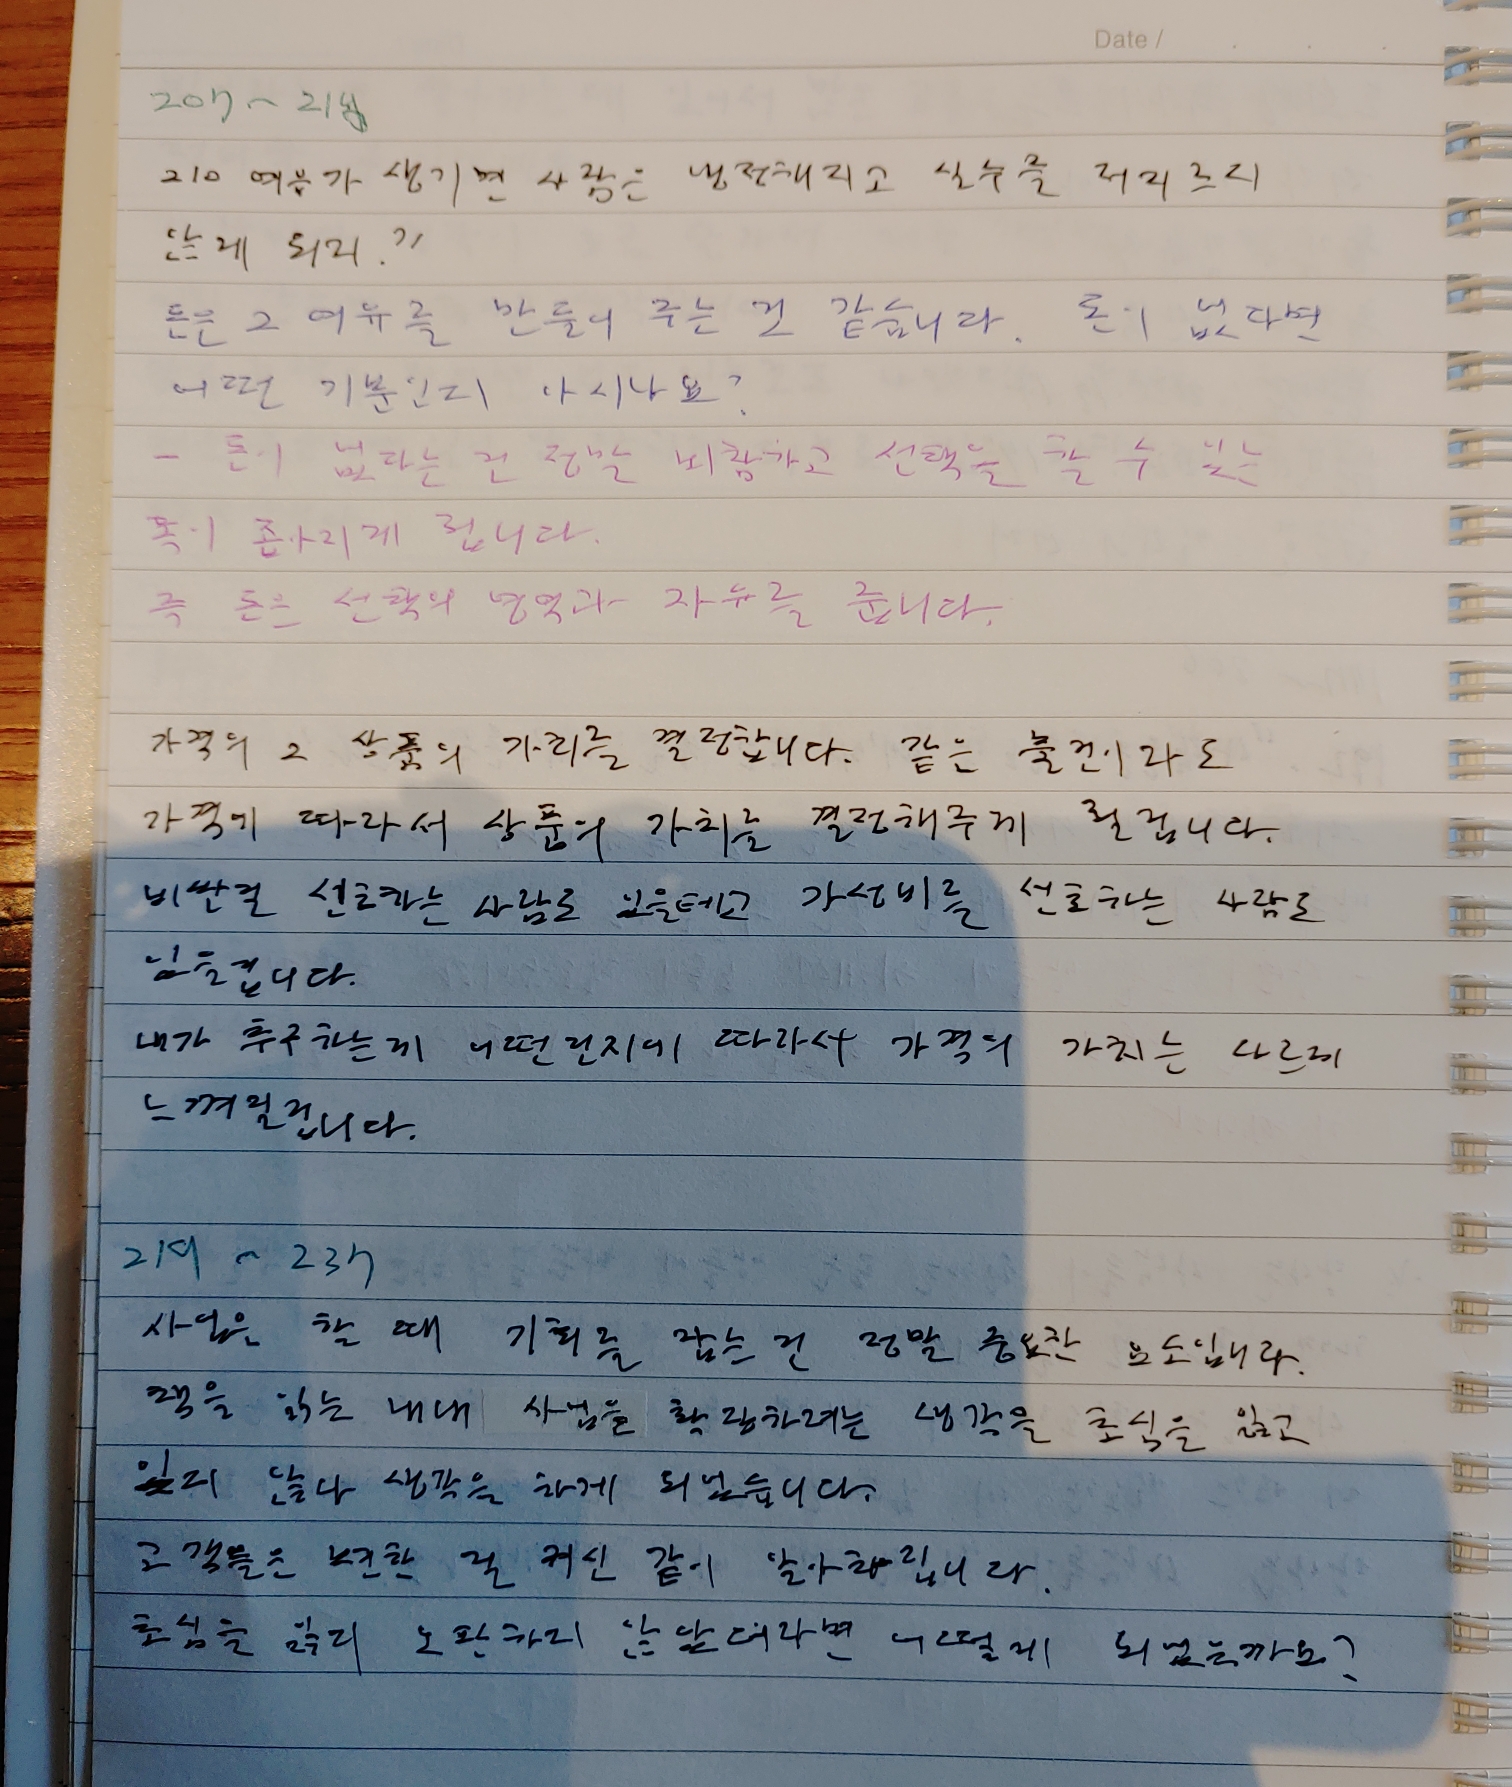 Date / . . .
207 ~ 21
210 여유가 생기면 사람은 냉정해지고 실수를 저지르지
않게 되지."
돈은 그 여유를 만들어 주는 것 같습니다. 돈이 없다면
어떤 기분인지 아시나요?
- 돈이 없다는 건 정말 비참하고 선택을 할 수 있는
폭이 좁아지게 됩니다.
즉 돈은 선택의 영역과 자유를 줍니다.
가격의 그 상품의 가치를 결정합니다. 같은 물건이라도
가격에 따라서 상품의 가치를 결정해주게 될겁니다.
비싼걸 선호하는 사람도 있을테고 가성비를 선호하는 사람도
있을겁니다.
내가 추구하는게 어떤건지에 따라서 가격의 가치는 다르게
느껴질겁니다.
219 ~ 237
사업은 할 때 기회를 잡는 건 정말 중요한 요소입니다.
책을 읽는 내내 사업을 확장하려는 생각을 초심을 잃고
있지 않나 생각을 하게 되었습니다.
고객들은 변한 걸 귀신 같이 알아차립니다.
초심을 잃지 않았더라면 어떻게 되었을까요?